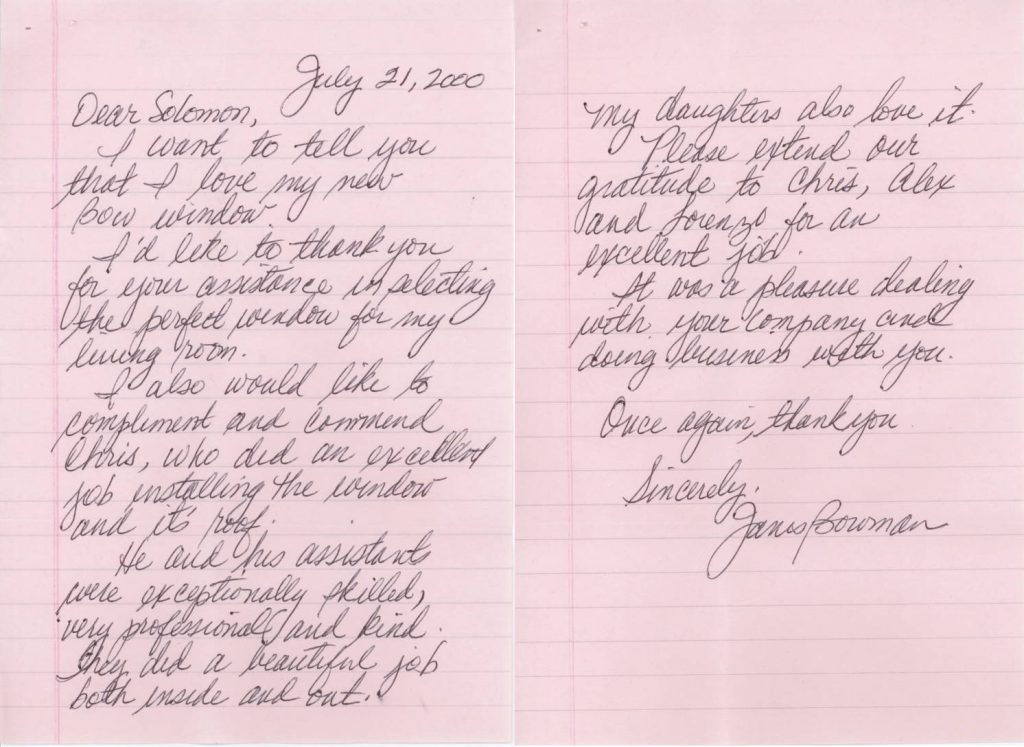 July 21, 2000
Dear Solomon,
I want to tell you
that I love my new
Bow window.
I'd like to thank you
for your assistance in selecting
the perfect window for my
living room.
I also would like to
compliment and commend
Chris, who did an excellent
job installing the window
and it's roof.
He and his assistants
were exceptionally skilled,
very professional and kind.
They did a beautiful job
both inside and out.
My daughters also love it.
Please extend our
gratitude to Chris, Alex
and Lorenzo for an
excellent job.
It was a pleasure dealing
with your company and
doing business with you.
Once again, thank you
Sincerely,
Bowman